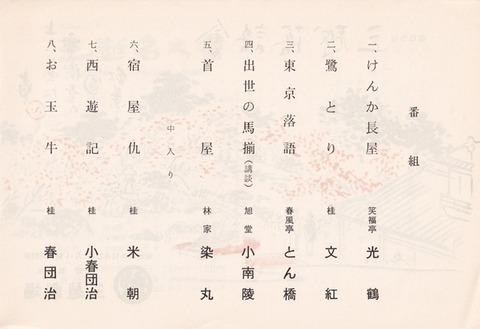 番組
一、けんか長屋 笑福亭 光鶴
二、鷺とり 桂 文紅
三、東京落語 春風亭 とん橋
四、出世の馬揃(講談) 旭堂 小南陵
五、首屋 林家 染丸
中入り
六、宿屋仇 桂 米朝
七、西遊記 桂 小春団治
八、お玉牛 桂 春団治